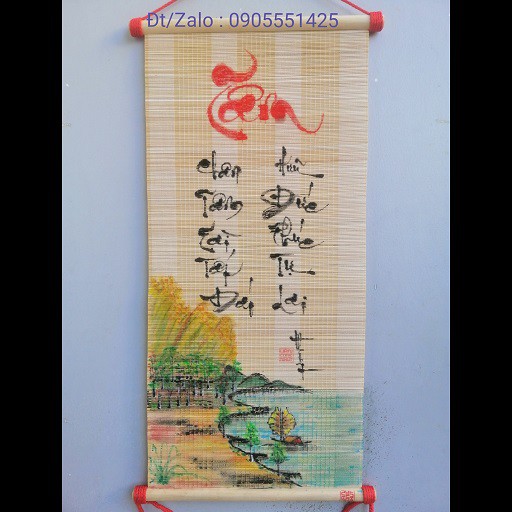 Đt/Zalo : 0905551425
Tâm
chân Tâm Tài Tất Đáp
Hữu Đức Phúc Tự Lai